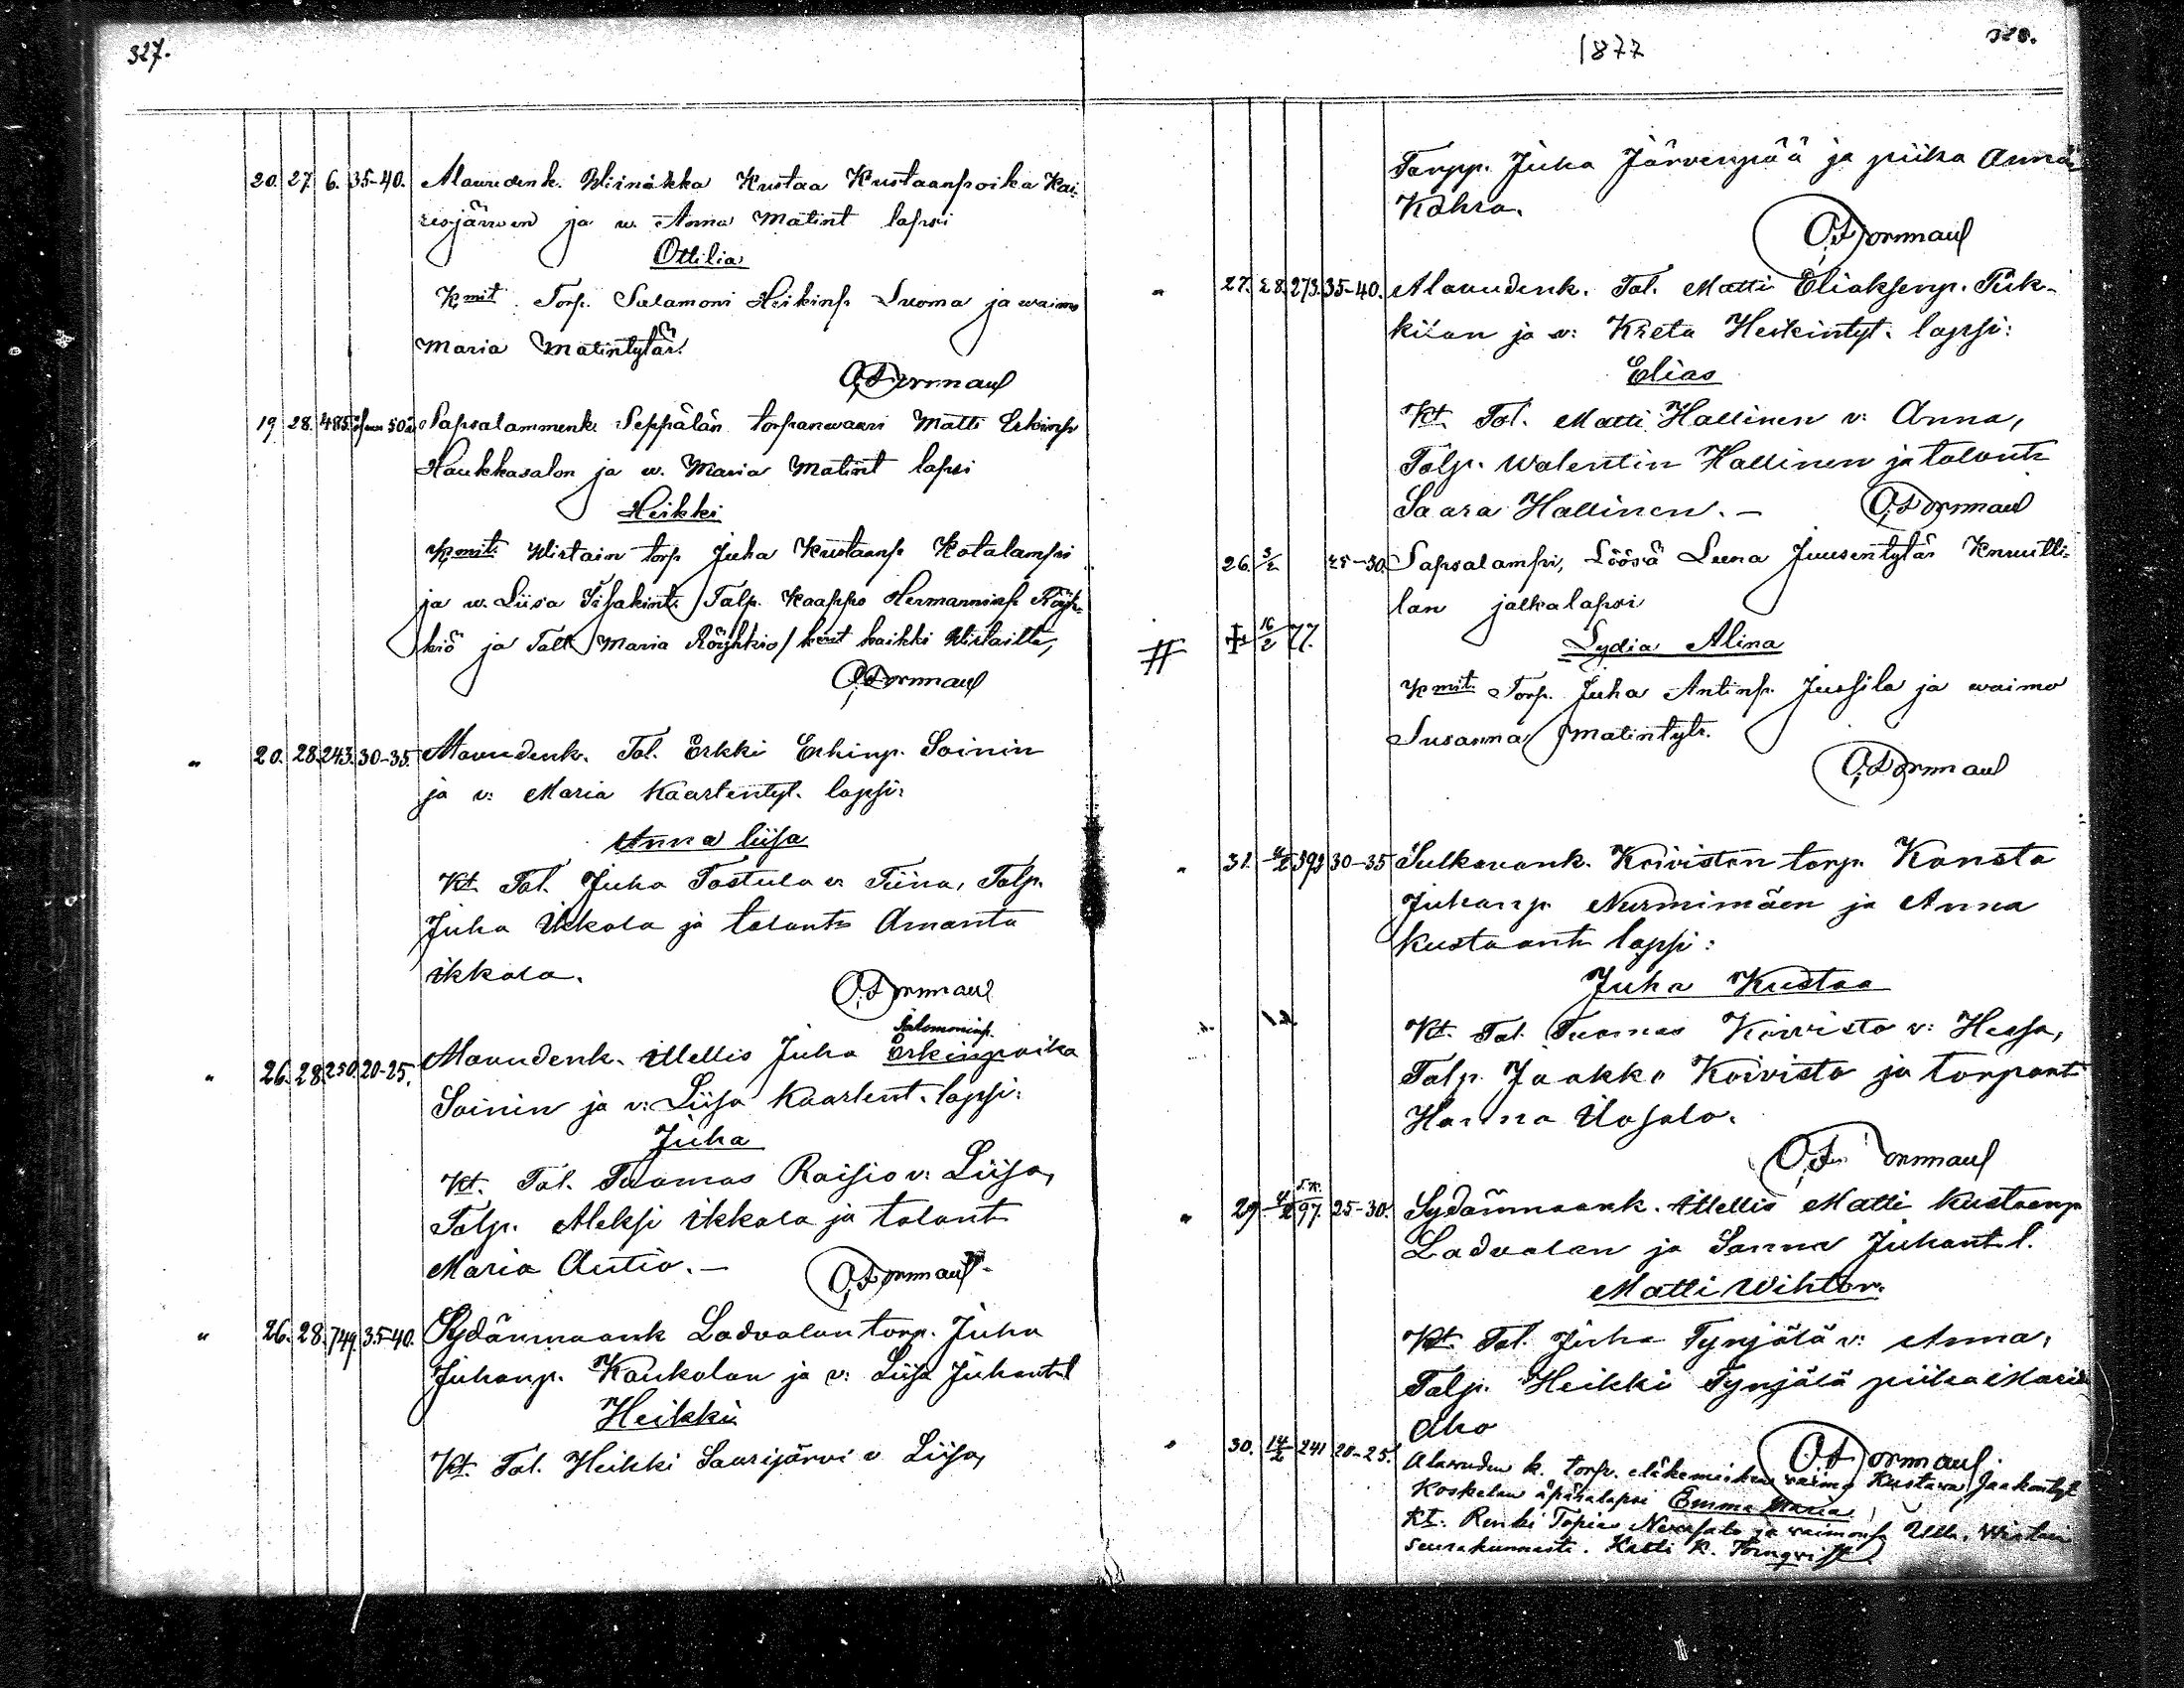 327.
20. 27. 6. 35-40. Alavudenk. Kustaa Kustaanpoika Kai-
resjärven ja w. Anna Matint lapsi
Ottilia
Kmit. Torp. Salamoni Heikinp. Luoma ja waimo
Maria Matintytär.
19 28. 485. Sapsalammenk. Seppälän torpanwaari Matti Erkinp
Haukkasalon ja w. Maria Matint lapsi
Heikki
Kmit. Wirtain torp Juha Kustaanp Kotalampi
ja w. Liisa Talp. Kaappo Hermanninp Röyh-
kiö ja Talt Maria Röyhkiö / kaikki
" 20. 28. 243. 30-35. Alavudenk. Tal. Erkki Erkinp. Soinin
ja v: Maria Kaarlentyt. lapsi:
Anna Liisa
Kt. Tal. Juha Tastula v. Tiina, Talp.
Juha Ikkala ja talont Amanta
Ikkala.
Salomoninp.
" 26. 28. 250. 20-25. Alavudenk. Itellis Juha Erkinpoika
Soinin ja v: Liisa Kaarlent. lapsi:
Juha
Kt. Tal. Tuomas Raisio v: Liisa,
Talp. Aleksi Ikkala ja talont
Maria Autio. -
" 26. 28. 749. 35-40. Sydänmaank Ladvalan torp. Juha
Juhanp. Kaukolan ja v: Liisa Juhant l
Heikki
Kt. Tal. Heikki Saarijärvi v Liisa,
1877
328.
Torpp. Juha Järvenpää ja piika Anna
Kahra.
" 27. 28. 273. 35-40. Alavudenk. Tal. Matti Eliaksenp. Tuk-
kiian ja v: Kreta Heikintyt. lapsi:
Elias
Kt. Tal. Matti Hallinen v: Anna,
Talp. Walentin Hallinen ja talont
Saara Hallinen. -
26. 3/2 25-30. Sapsalampi, Löösä Leena Juusentytär Knuutti-
lan jalkalapsi
# † 16/2 77. Lydia Alina
Kmit. Torp. Juha Antinp. Jussila ja waimo
Susanna Matintytr.
" 31. 4/2 592 30-35 Sulkavank. Koiviston torp. Konsta
Juhanp. Nurmimäen ja Anna
Kustaant lapsi:
Juha Kustaa
Kt. Tal. Tuomas Koivisto v: Hessa,
Talp. Jaakko Koivisto ja torpant
Hanna Uosalo.
" 29 4/2 97. 25-30. Sydänmaank. Itellis Matti Kustaanp
Ladvalan ja Sanna Juhant l.
Matti Wihtor.
Kt. Tal. Juha Tynjälä v: Anna,
Talp. Heikki Tynjälä piika Maria
Aho
" 30. 14/2 241 20-25. Alavuden k. torp. waimo Kustava Jaakontyt
Koskelan äpärälapsi Emma Maria
Kt: Renki Tapio ja vaimonsa Ulla, Wirtain
seurakunnasta. Kasti K. Törnqvist